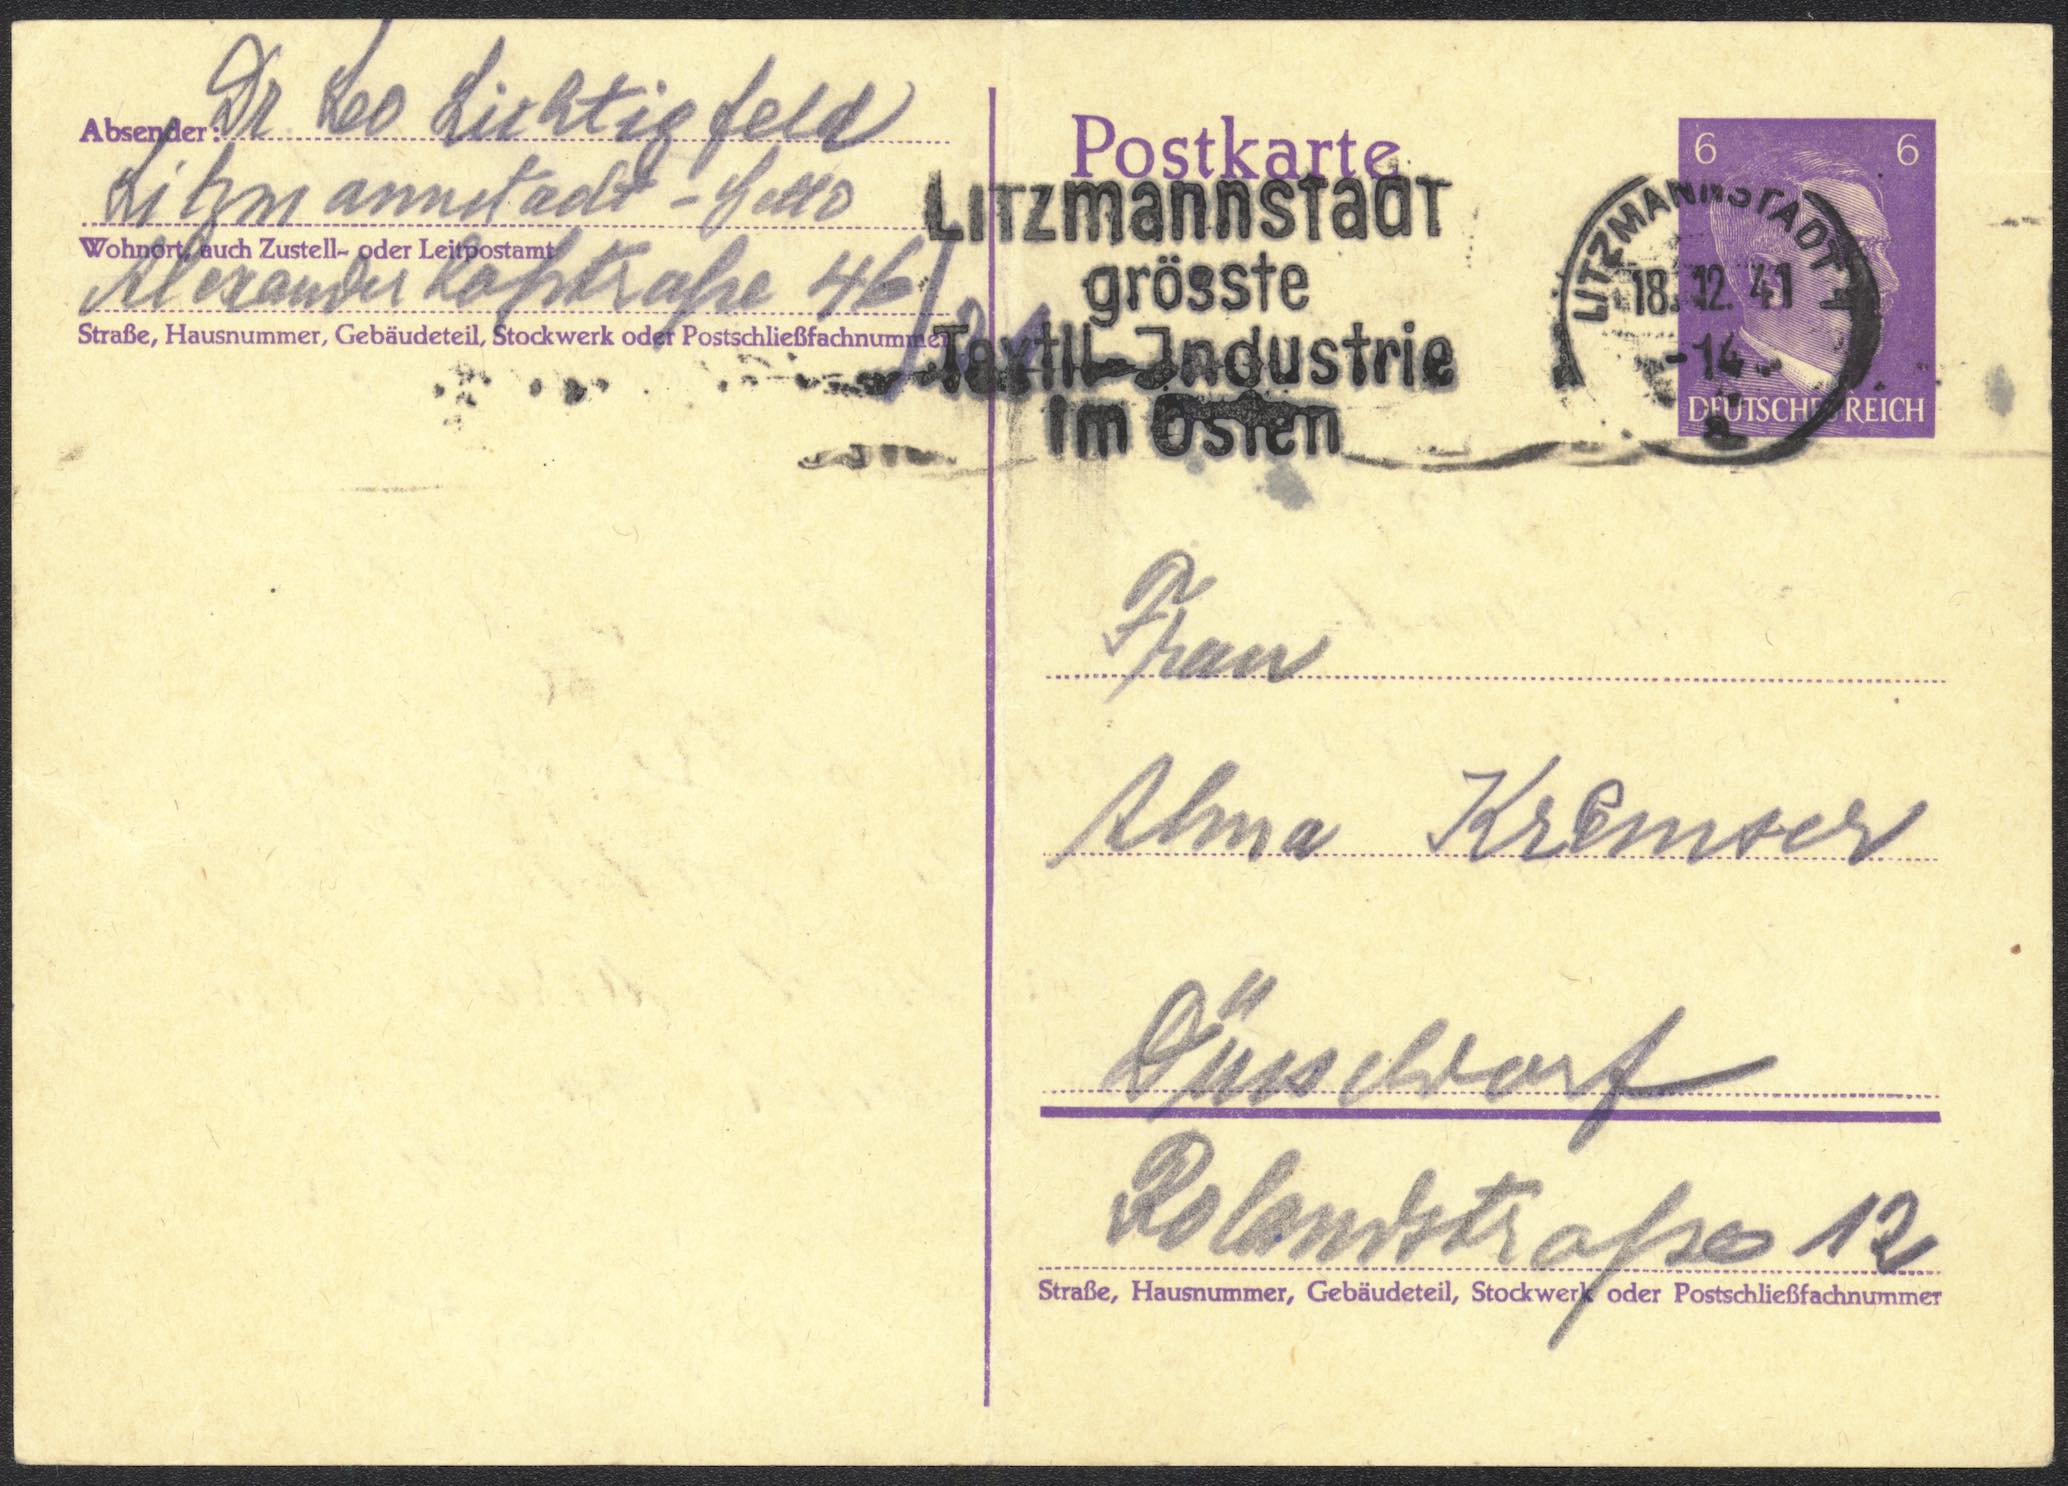 Absender: Dr Leo Lichtigfeld
Litzmannstadt - Getto
Wohnort, auch Zustell- oder Leitpostamt
Alexanderhofstraße 46/
Straße, Hausnummer, Gebäudeteil, Stockwerk oder Postschließfachnummer
Postkarte
Litzmannstadt
grösste
Textil-Industrie
im Osten
LITZMANNSTADT
18.12.41
-14
6 6
DEUTSCHES REICH
Frau
Alma Kremser
Düsseldorf
Rolandstraße 12
Straße, Hausnummer, Gebäudeteil, Stockwerk oder Postschließfachnummer